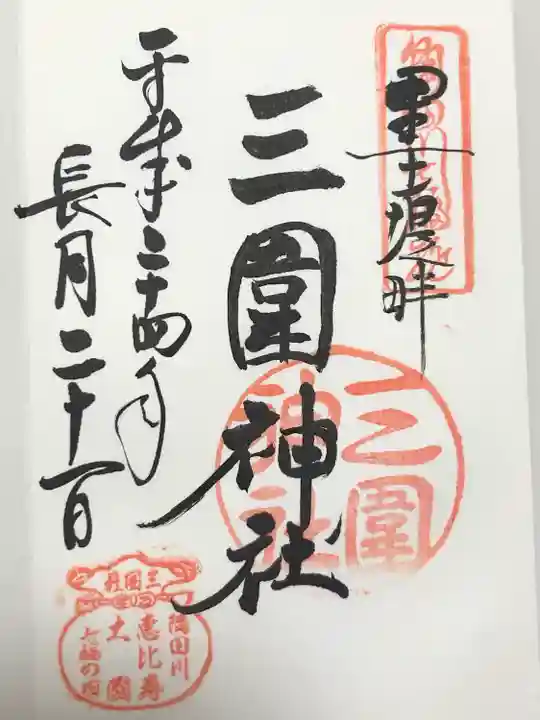 墨土堤畔
三圍神社
平成二十四年
長月二十一日
三圍神社
三圍社
隅田川
恵比寿
大國
七福の内